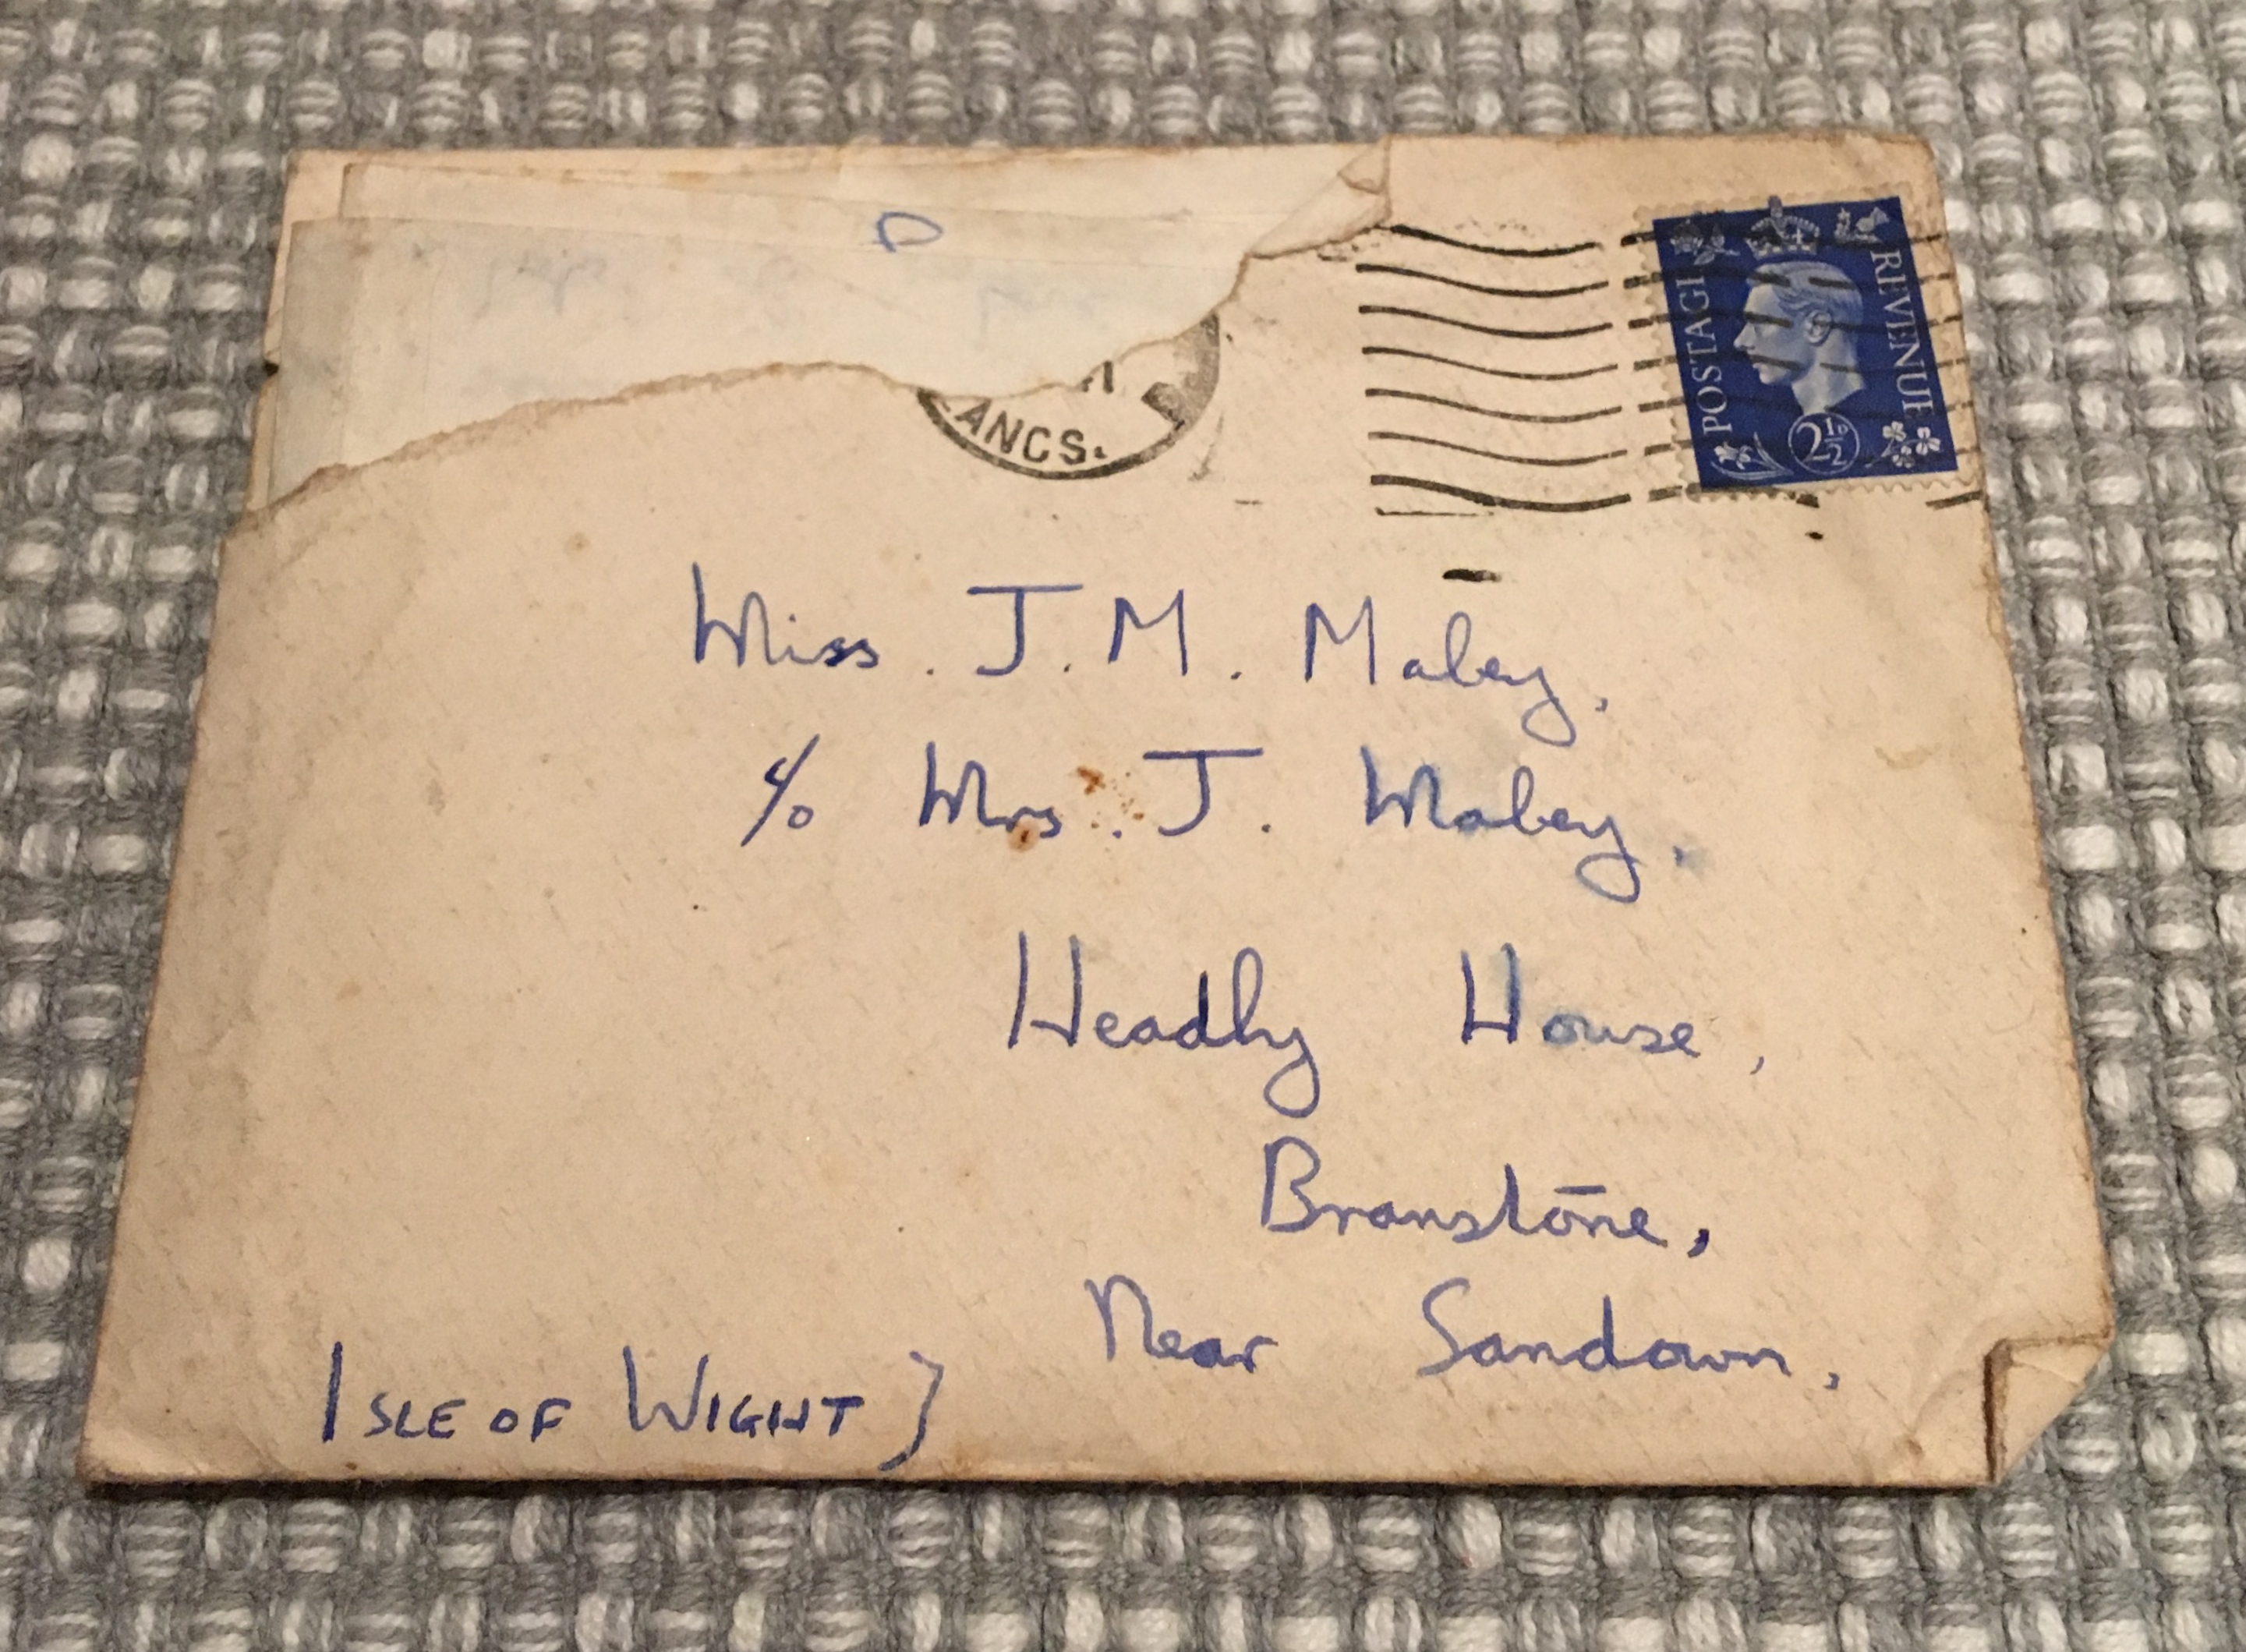 POSTAGE REVENUE
2½D
LANCS.
Miss. J. M. Maley,
c/o Mrs. J. Maley,
Headly House,
Branstone,
Near Sandown,
ISLE OF WIGHT }